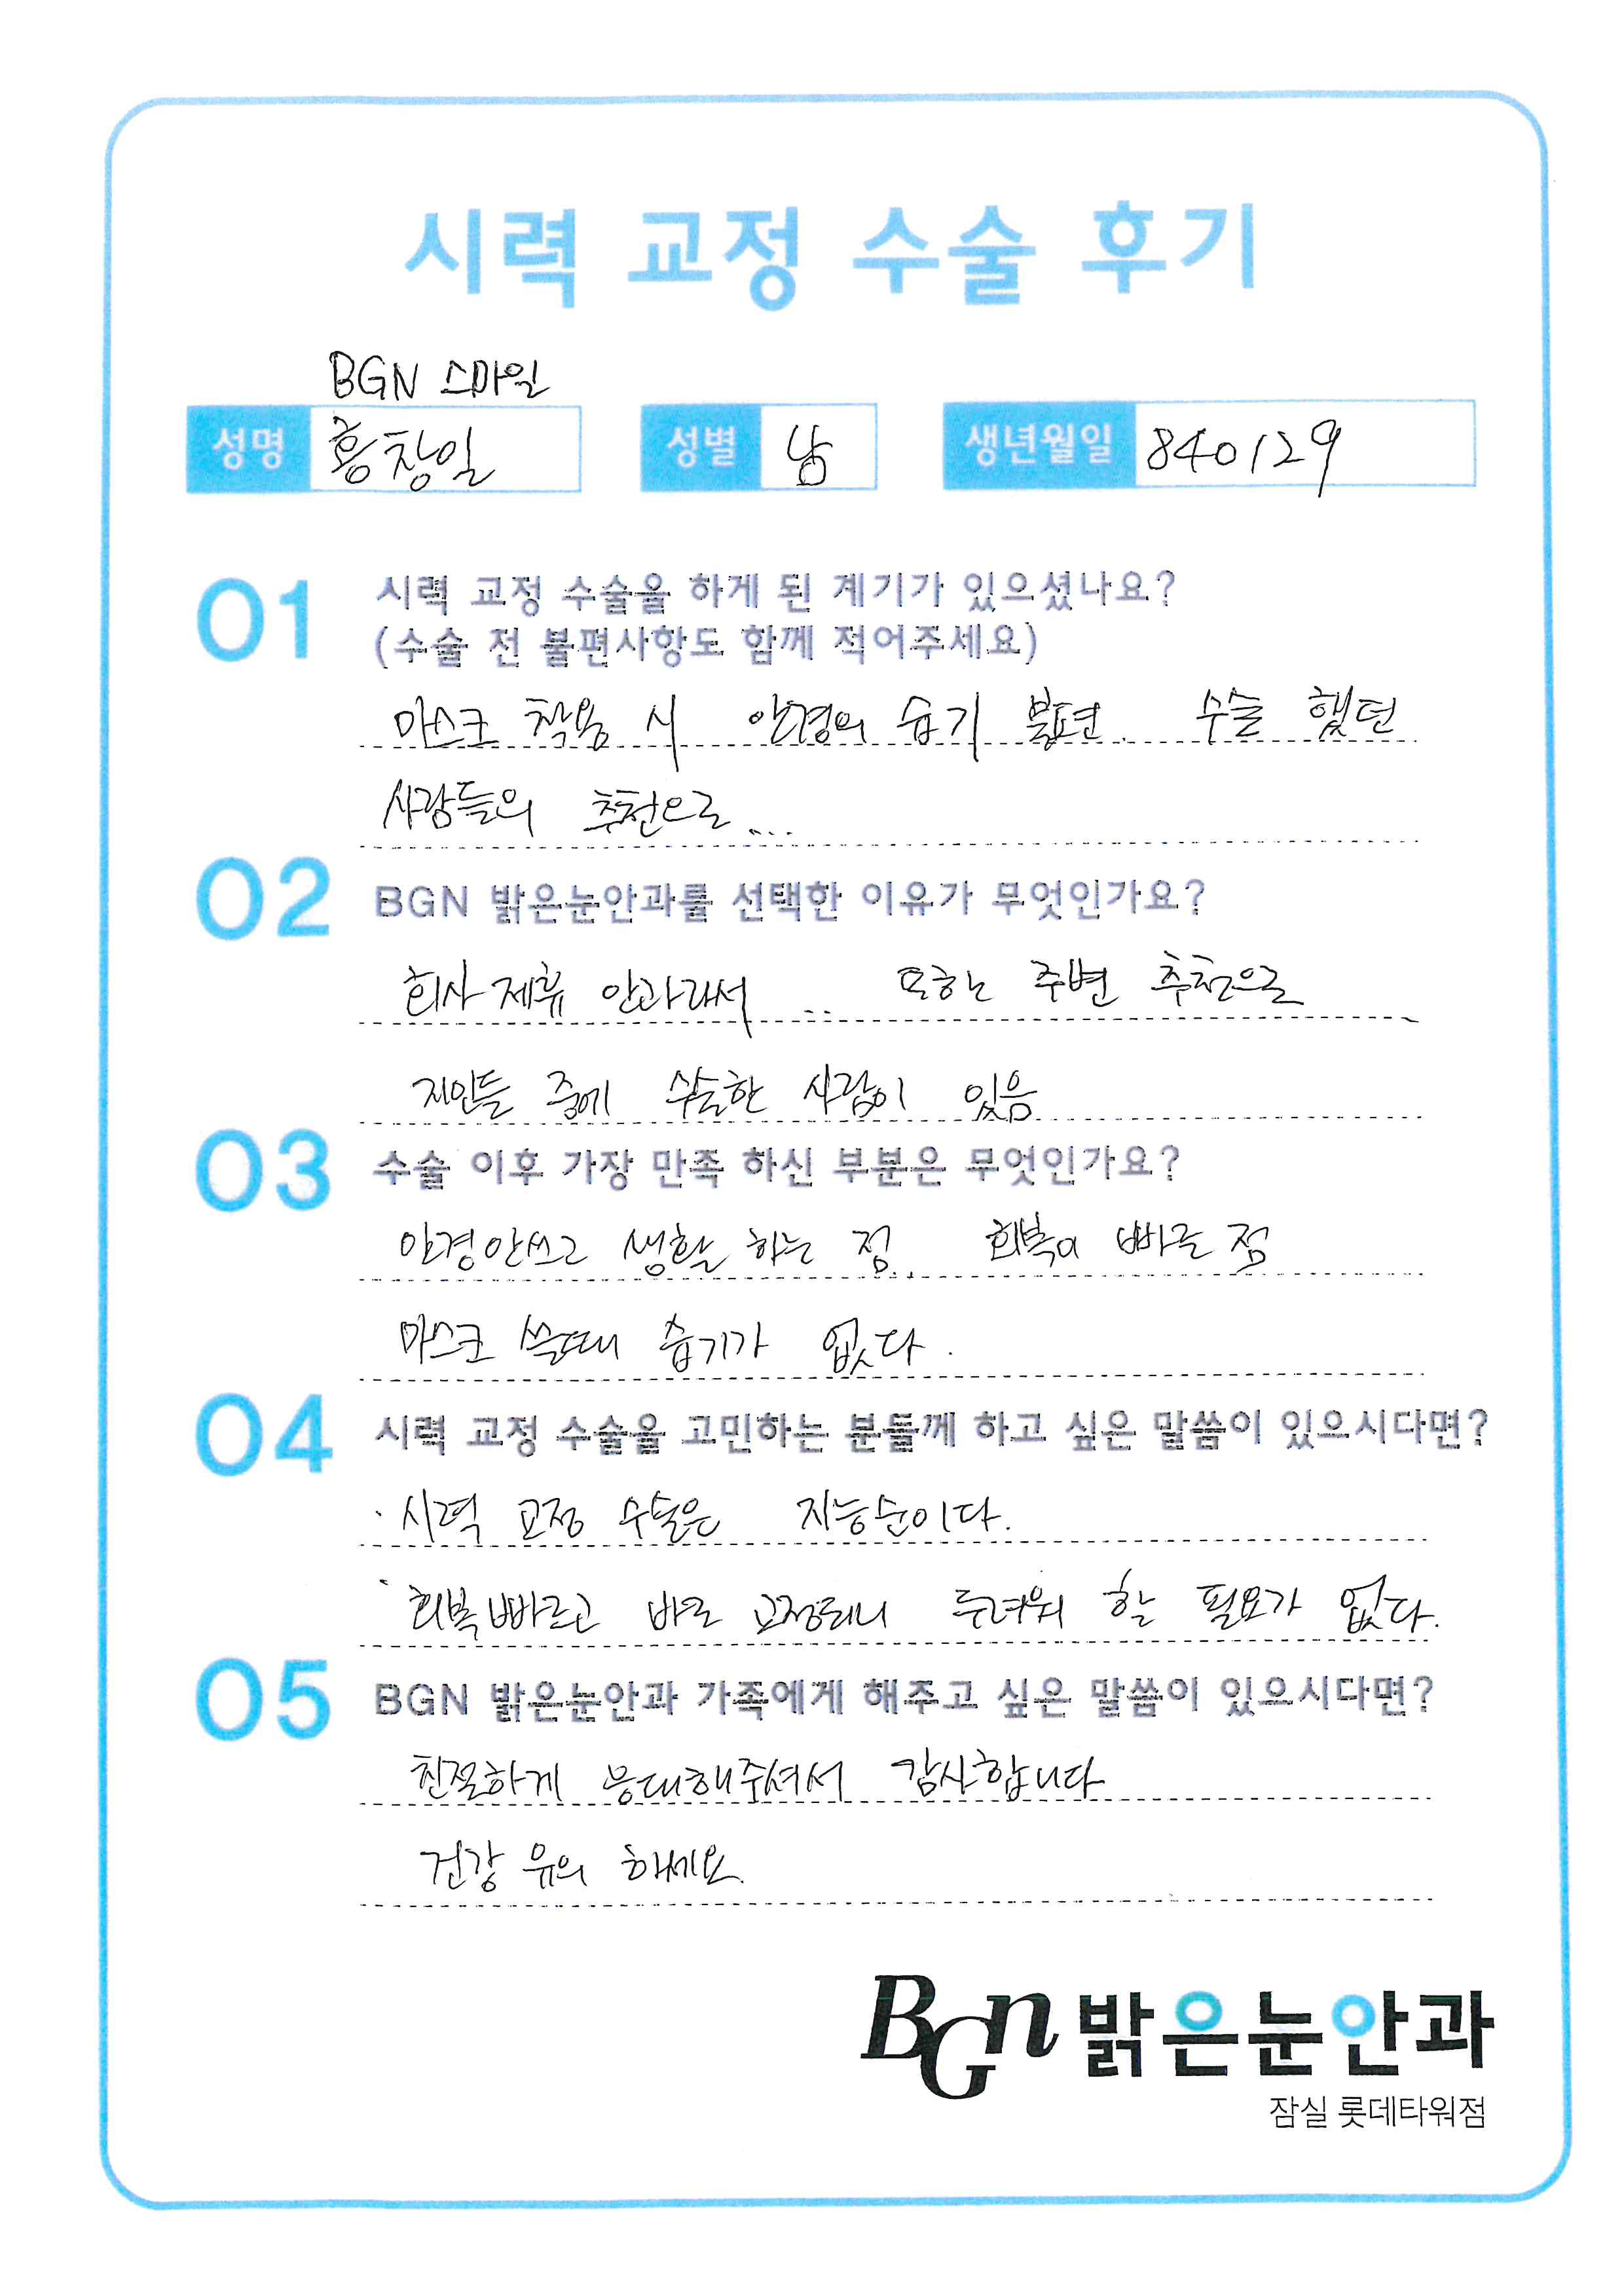 시력 교정 수술 후기
BGN 스마일
성명 홍창일 성별 남 생년월일 840129
01 시력 교정 수술을 하게 된 계기가 있으셨나요?
(수술 전 불편사항도 함께 적어주세요)
마스크 착용 시 안경의 습기 불편. 수술 했던
사람들의 추천으로...
02 BGN 밝은눈안과를 선택한 이유가 무엇인가요?
회사 제휴 안과라서 .. 또하는 주변 추천으로
지인들 중에 수술한 사람이 있음
03 수술 이후 가장 만족 하신 부분은 무엇인가요?
안경안쓰고 생활 하는 점. 회복이 빠른 점
마스크 쓸때 습기가 없다.
04 시력 교정 수술을 고민하는 분들께 하고 싶은 말씀이 있으시다면?
· 시력 교정 수술은 지능순이다.
· 회복빠르고 바로 교정되니 두려워 할 필요가 없다.
05 BGN 밝은눈안과 가족에게 해주고 싶은 말씀이 있으시다면?
친절하게 응대해주셔서 감사합니다
건강 유의 하세요.
BGn 밝은눈안과
잠실 롯데타워점